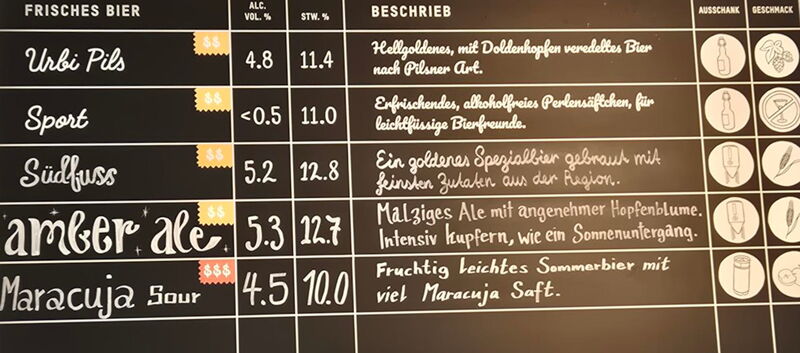 FRISCHES BIER
ALC. VOL. %
STW. %
BESCHRIEB
AUSSCHANK
GESCHMACK
Urbi Pils
$$
4.8
11.4
Hellgoldenes, mit Doldenhopfen veredeltes Bier
nach Pilsner Art.
Sport
$$
<0.5
11.0
Erfrischendes, alkoholfreies Perlensäftchen, für
leichtfüssige Bierfreunde.
Südfuss
$$
5.2
12.8
Ein goldenes Spezialbier gebraut mit
feinsten Zutaten aus der Region.
amber ale
$$
5.3
12.7
Malziges Ale mit angenehmer Hopfenblume.
Intensiv kupfern, wie ein Sonnenuntergang.
Maracuja Sour
$$$
4.5
10.0
Fruchtig leichtes Sommerbier mit
viel Maracuja Saft.